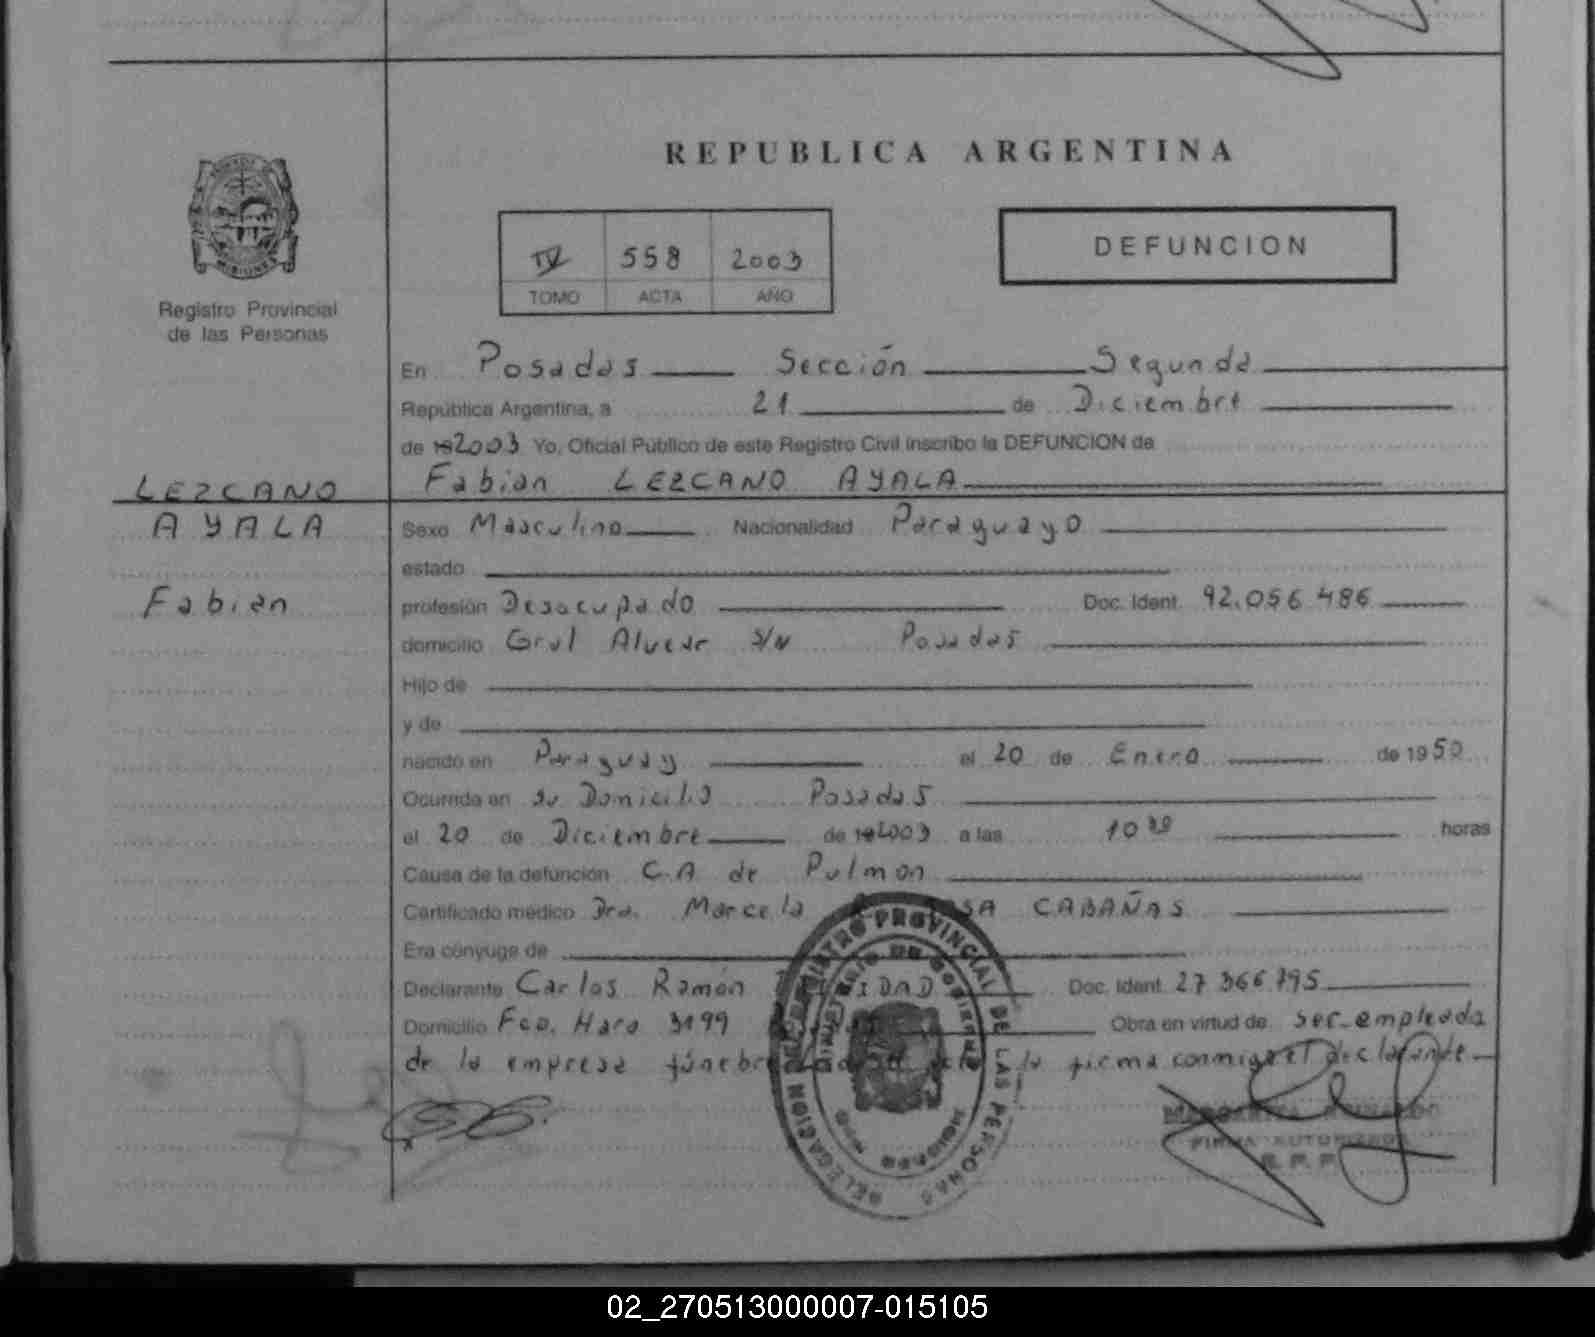 REPUBLICA ARGENTINA
IV 558 2003
TOMO ACTA AÑO
DEFUNCION
MISIONES
Registro Provincial
de las Personas
En Posadas Sección Segunda
República Argentina, a 21 de Diciembre
de 192003 Yo, Oficial Público de este Registro Civil inscribo la DEFUNCION de
Fabian LEZCANO AYALA
LEZCANO
AYALA
Fabian
Sexo Masculino Nacionalidad Paraguayo
estado
profesión Desocupado Doc. Ident. 92.056.486
domicilio Gral Alvear S/N Posadas
Hijo de
y de
nacido en Paraguay el 20 de Enero de 1950
Ocurrida en su Domicilio Posadas
el 20 de Diciembre de 192003 a las 10 horas
Causa de la defunción C.A de Pulmon
Certificado médico Dra. Marcela CABAÑAS
Era cónyuge de
Declarante Carlos Ramón Doc. Ident. 27.366.795
Domicilio Fco. Haro 3199 Obra en virtud de ser empleado
de la empresa fúnebre la firma conmigo el declarante
DELEGACION DEL REGISTRO PROVINCIAL DE LAS PERSONAS
MINISTERIO DE GOBIERNO
FIRMA AUTORIZADA
R. P. P.
02_270513000007-015105